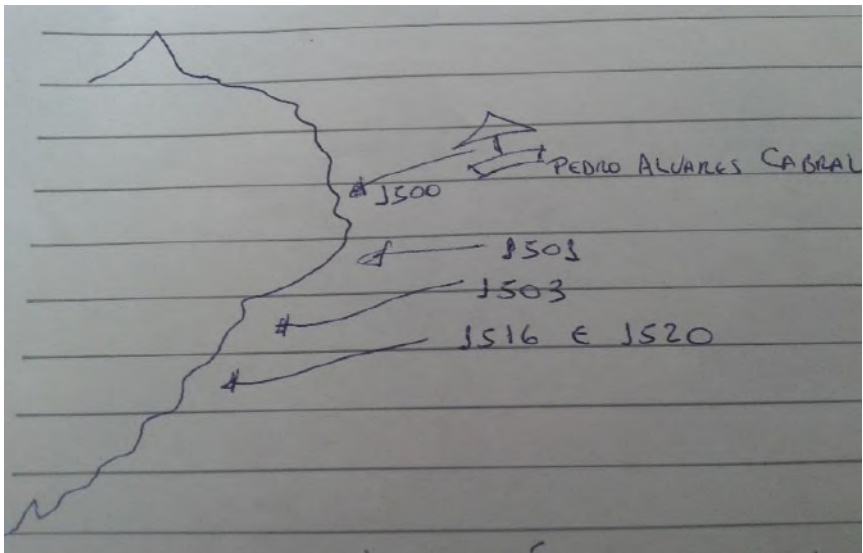 PEDRO ALVARES CABRAL
1500
1501
1503
1516 E 1520